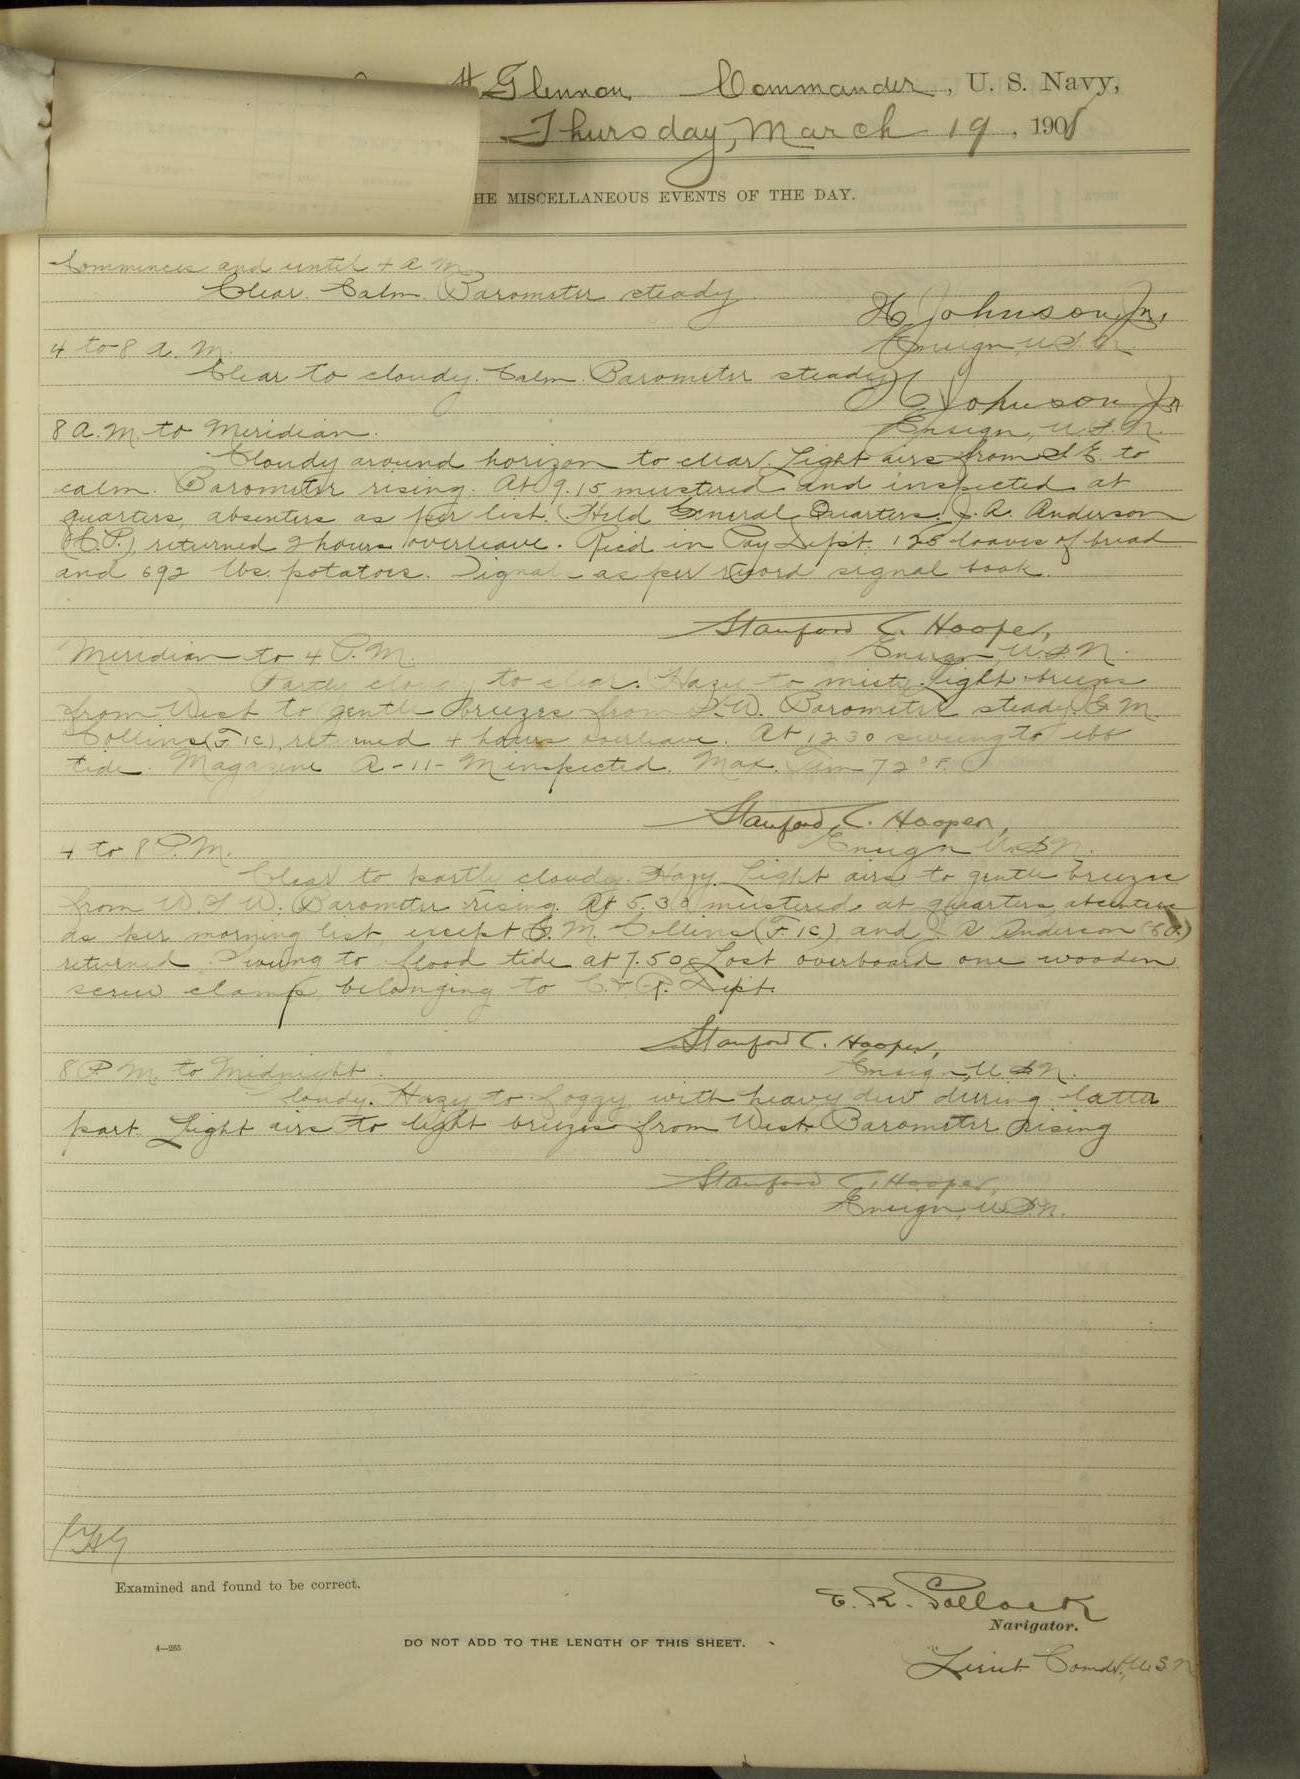 H. Glennon, Commander, U. S. Navy,
Thursday, March 19, 1908
HE MISCELLANEOUS EVENTS OF THE DAY.
Commences and until 4 a.m.
Clear. Calm. Barometer steady.
H Johnson, Jr.,
Ensign, U.S.N.
4 to 8 a.m.
Clear to cloudy. Calm. Barometer steady.
H Johnson Jr
Ensign, U.S.N.
8 A.M. to Meridian.
Cloudy around horizon to clear. Light airs from S E to
calm. Barometer rising. At 9.15 mustered and inspected at
quarters, absentees as per list. Held General Quarters. J. A. Anderson
(C.P.) returned 2 hours overleave. Rec'd in Pay Dept. 125 loaves of bread
and 692 lbs. potatoes. Signals as per record signal book.
Stanford C. Hooper,
Ensign, U.S.N.
Meridian to 4 P.M.
Partly cloudy to clear. Hazy to misty. Light breezes
from West to gentle breezes from S.W. Barometer steady. E. M.
Collins (F1C), returned 4 hours overleave. At 12 30 swung to ebb
tide. Magazine A-11-M inspected. Max. Tem 72° F.
Stanford C. Hooper,
Ensign, U.S.N.
4 to 8 P.M.
Clear to partly cloudy. Hazy. Light airs to gentle breeze
from W.S.W. Barometer rising. At 5.30 mustered at quarters, absentees
as per morning list, except E. M. Collins (F1C), and J A Anderson (C.P.)
returned. Swung to flood tide at 7.50. Lost overboard one wooden
screw clamp, belonging to C. & R. Dept.
Stanford C. Hooper,
Ensign, U.S.N.
8 P.M. to Midnight.
Cloudy. Hazy to foggy with heavy dew during latter
part. Light airs to light breezes from West. Barometer rising
Stanford C. Hooper,
Ensign, U.S.N.
Examined and found to be correct.
E. R. Pollock
Navigator.
4—265
DO NOT ADD TO THE LENGTH OF THIS SHEET.
Lieut Comdr, U.S.N